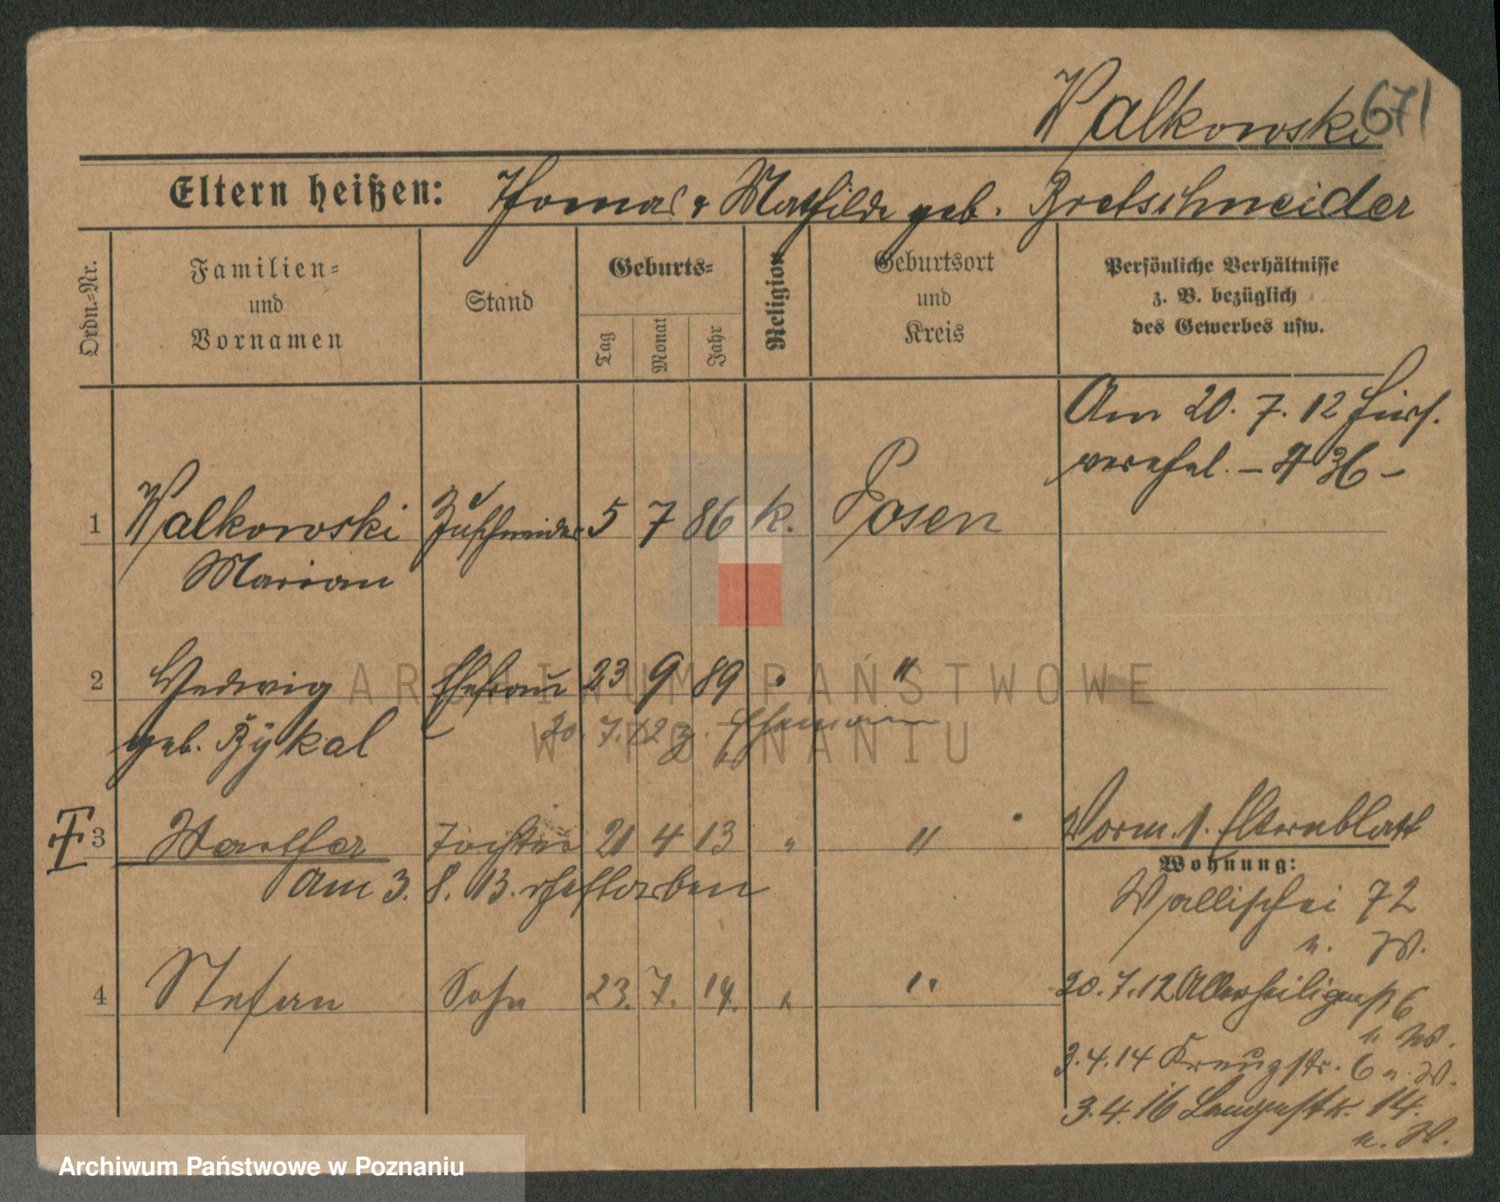 Walkowski 671
Eltern heißen: Thomas u Mathilde geb. Bretschneider
Ordn.-Nr.
Familien-
und
Vornamen
Stand
Geburts-
Tag
Monat
Jahr
Religion
Geburtsort
und
Kreis
Persönliche Verhältnisse
z. B. bezüglich
des Gewerbes usw.
Am 20. 7. 12 hier
verehel. - 436 -
1 Walkowski Zuschneider 5 7 86 k. Posen
Marian
2 Hedwig Ehefrau 23 9 89 " "
geb. Bykal
20. 7. 12 z. Ehemann
3 Walther 21 4 13 " "
Am 3. 8. 13. gestorben
Vorm. 1. Elternblatt
Wohnung:
Wallischei 72
n. W.
4 Stefan Sohn 23. 7. 14. " "
20.7.12 Allerheiligenst 6
n. W.
3.4.14 Kreuzstr. 6 n. W.
3.4.16 Langestr. 14.
n. W.
ARCHIWUM PAŃSTWOWE
W POZNANIU
Archiwum Państwowe w Poznaniu